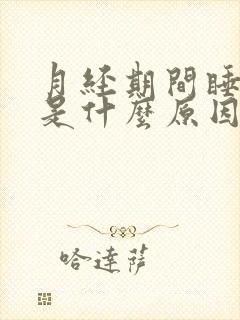 月经期間睡
是什麽原因
哈達萨